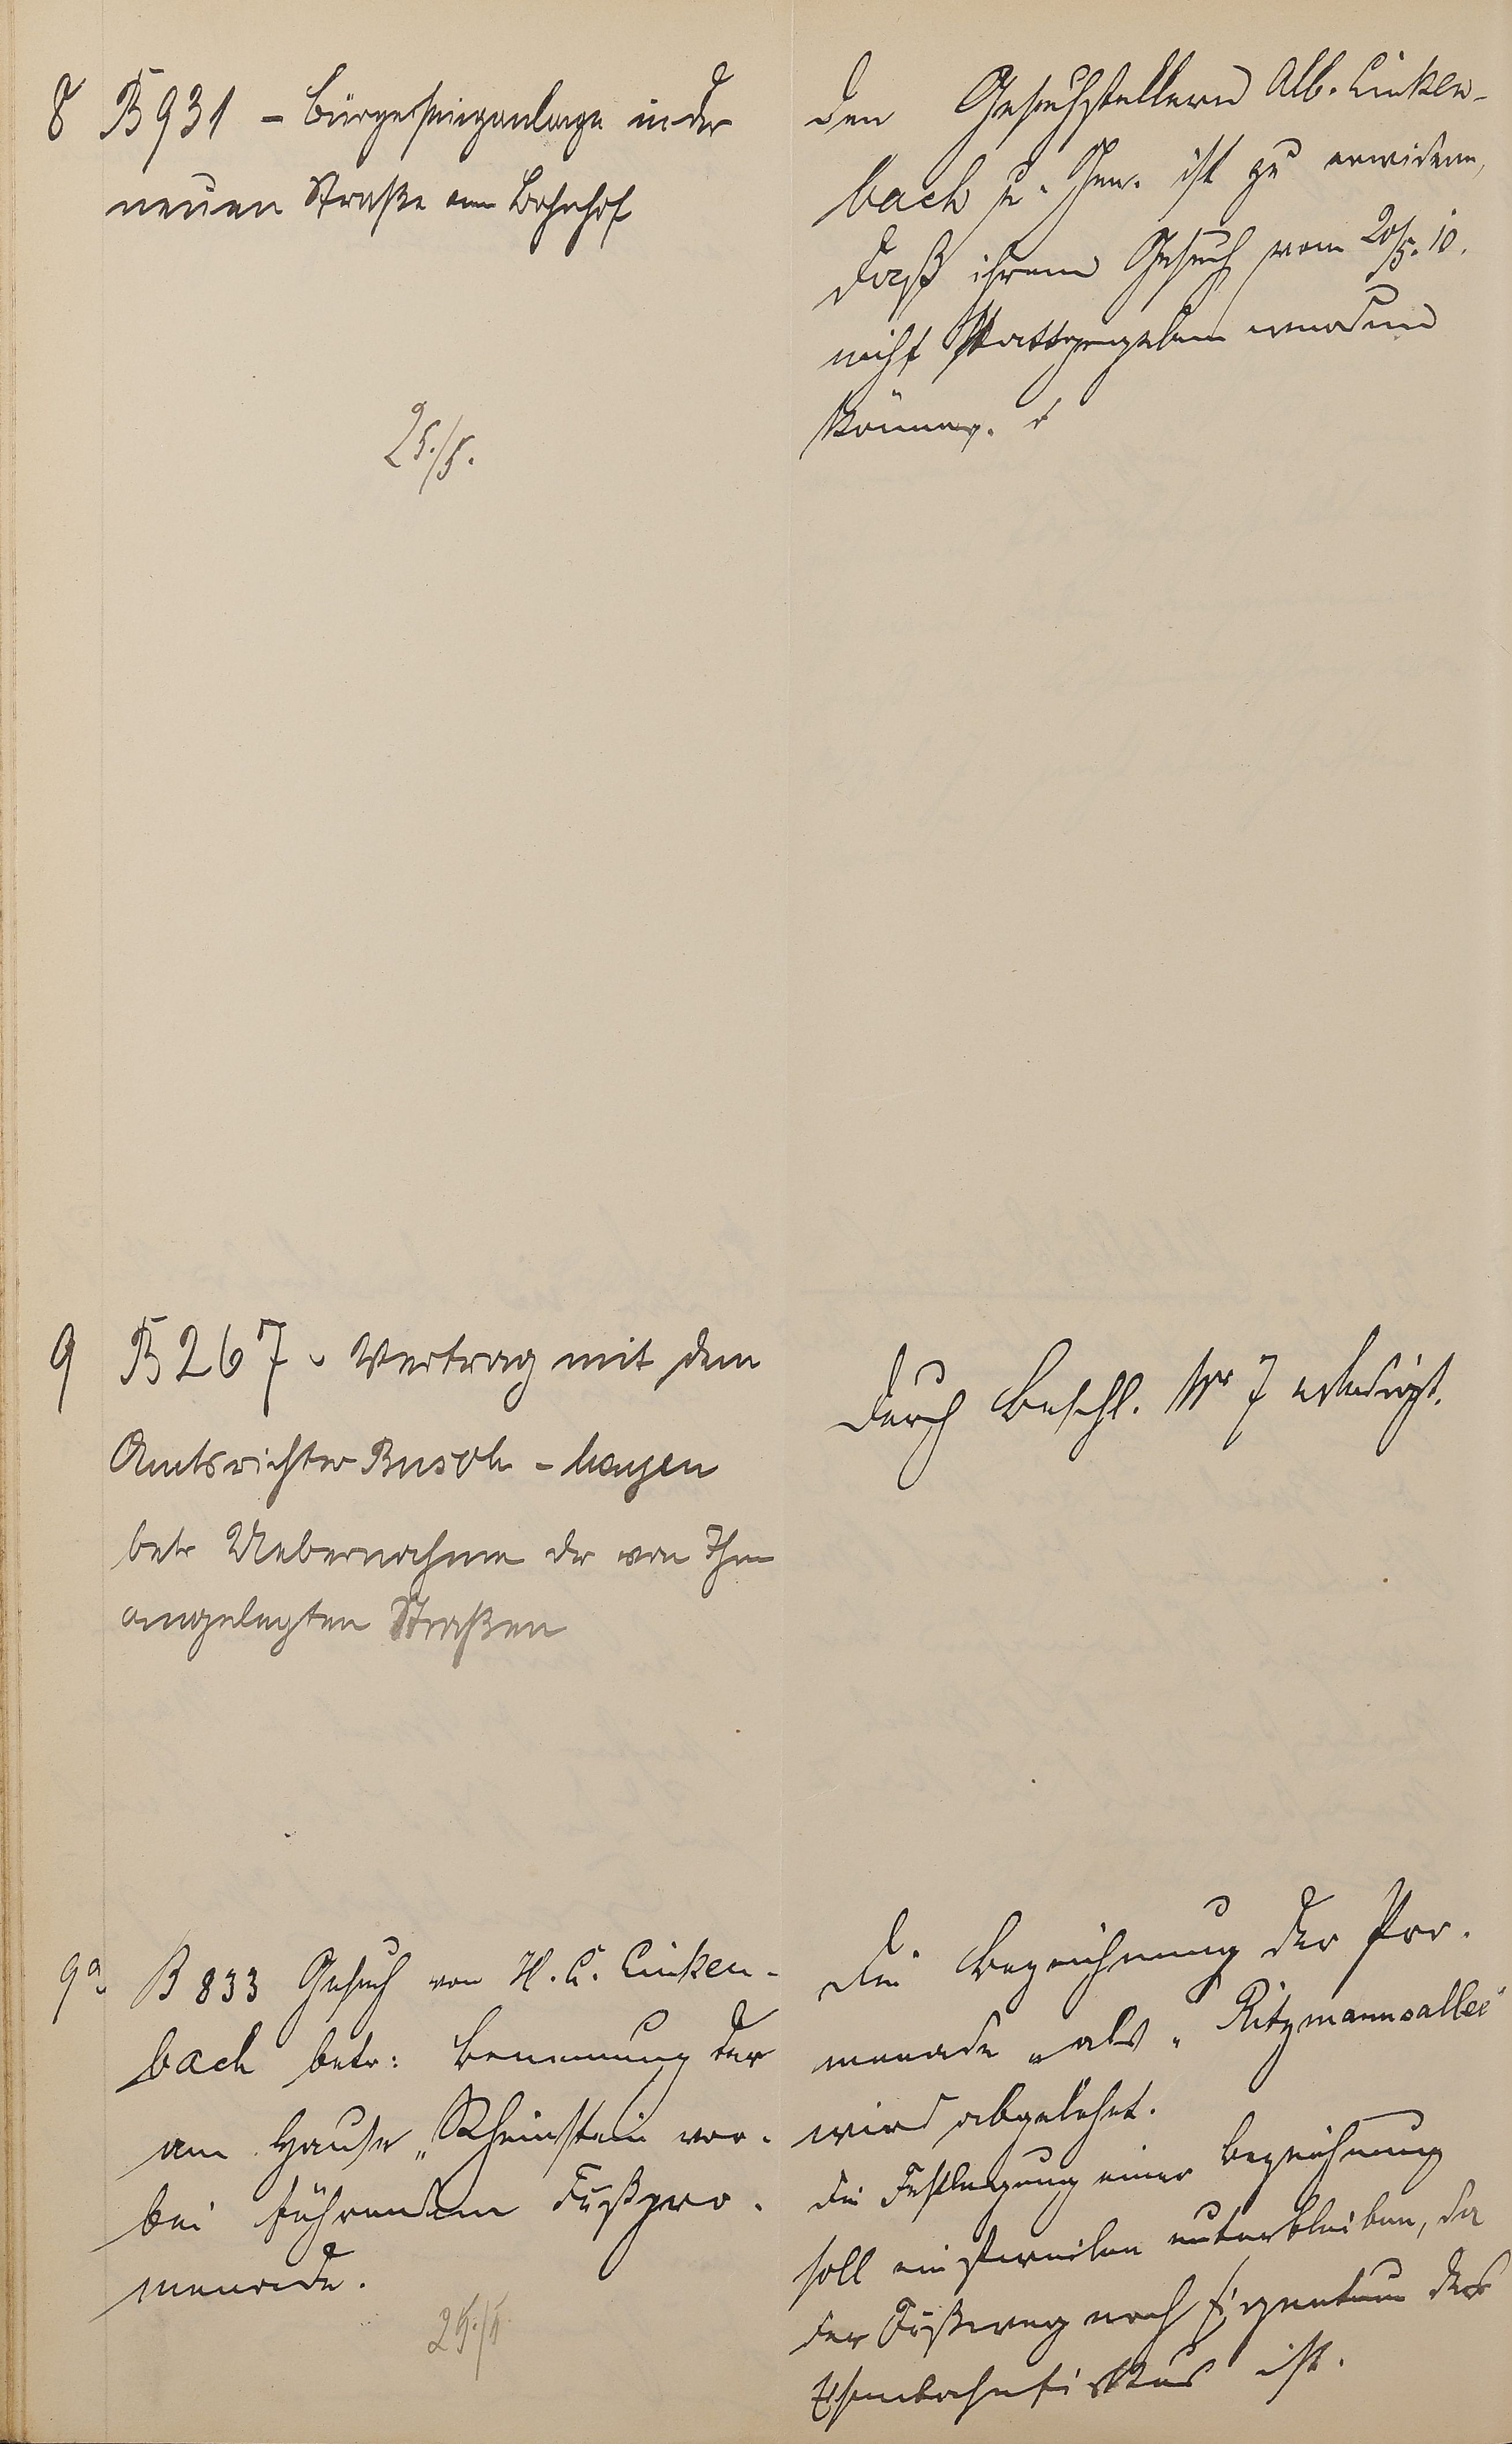 8 B 931 - Bürgersteiganlage in der
neuen Straße am Bahnhof
25./5.
Den Gesuchstellern Alb. Linken-
bach u. Gen. ist zu erwidern,
daß ihrem Gesuch vom 20/5. 10.
nicht stattgegeben werden
könne.
9 B 267 - Vertrag mit dem
Amtsrichter Busch - hagen
betr Uebernahme der von Ihm
angelegten Straßen
Durch Beschl. Nr 7 erledigt.
9a. B 833 Gesuch von H. C. Linken-
bach betr: Benennung der
am Hause „Rheinstein vor-
bei führenden Fußpro-
menade.
25./5.
Die Bezeichnung der Pro-
menade als „Ritzmannsallee"
wird abgelehnt.
Die Festlegung einer Bezeichnung
soll einstweilen unterbleiben, da
der Fußweg noch Eigentum des
Eisenbahnfiskus ist.